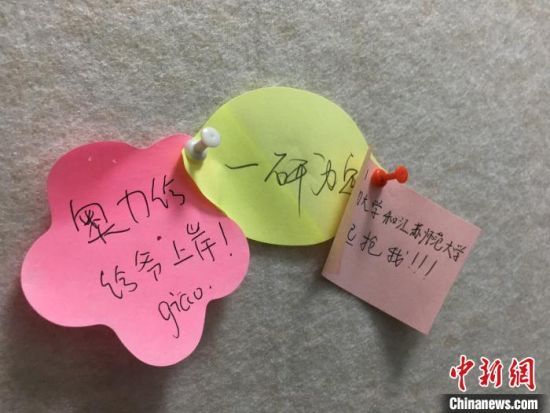 奥力给
给爷上岸!
giao.
一研为定!
大学和江苏师范大学
已抢我!!!
中新網
Chinanews.com